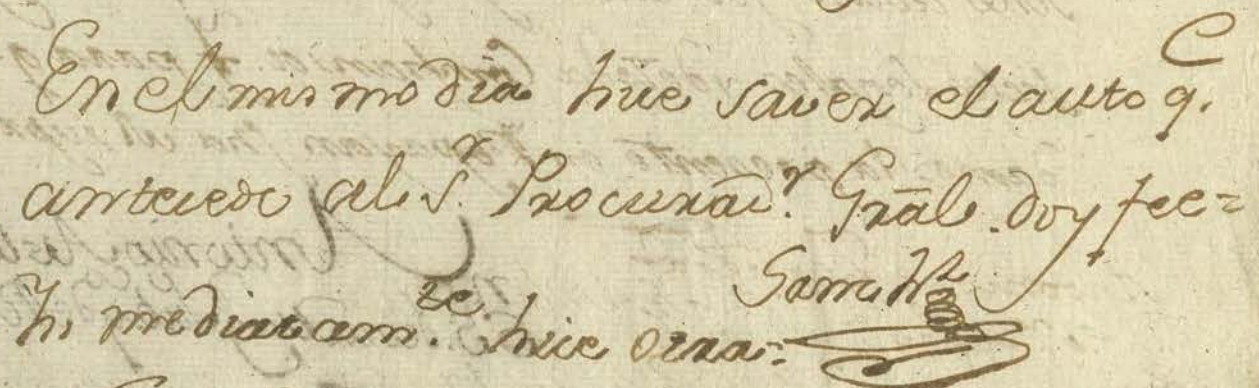 En el mismo dia hice saver el auto q.
antecede al S.r Procurad.r Grãl. doy fee=
Sanchz
Ynmediatam.te hice otra=